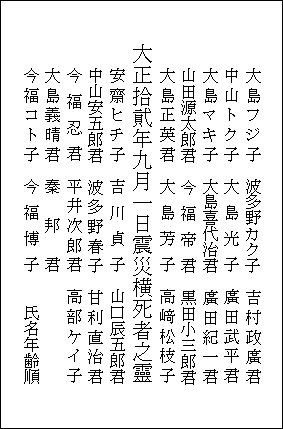 大島フジ子 波多野カク子 吉村政廣君
中山トク子 大島光子 廣田武平君
大島マキ子 大島喜代治君 廣田紀一君
山田源太郎君 今福帝君 黒田小三郎君
大島正英君 大島芳子 高崎松枝子
大正拾貳年九月一日震災橫死者之靈
安齋ヒチ子 吉川貞子 山口辰五郎君
中山安五郎君 波多野春子 甘利直治君
今福忍君 平井次郎君 高部ケイ子
大島義晴君 秦邦君
今福コト子 今福博子 氏名年齡順